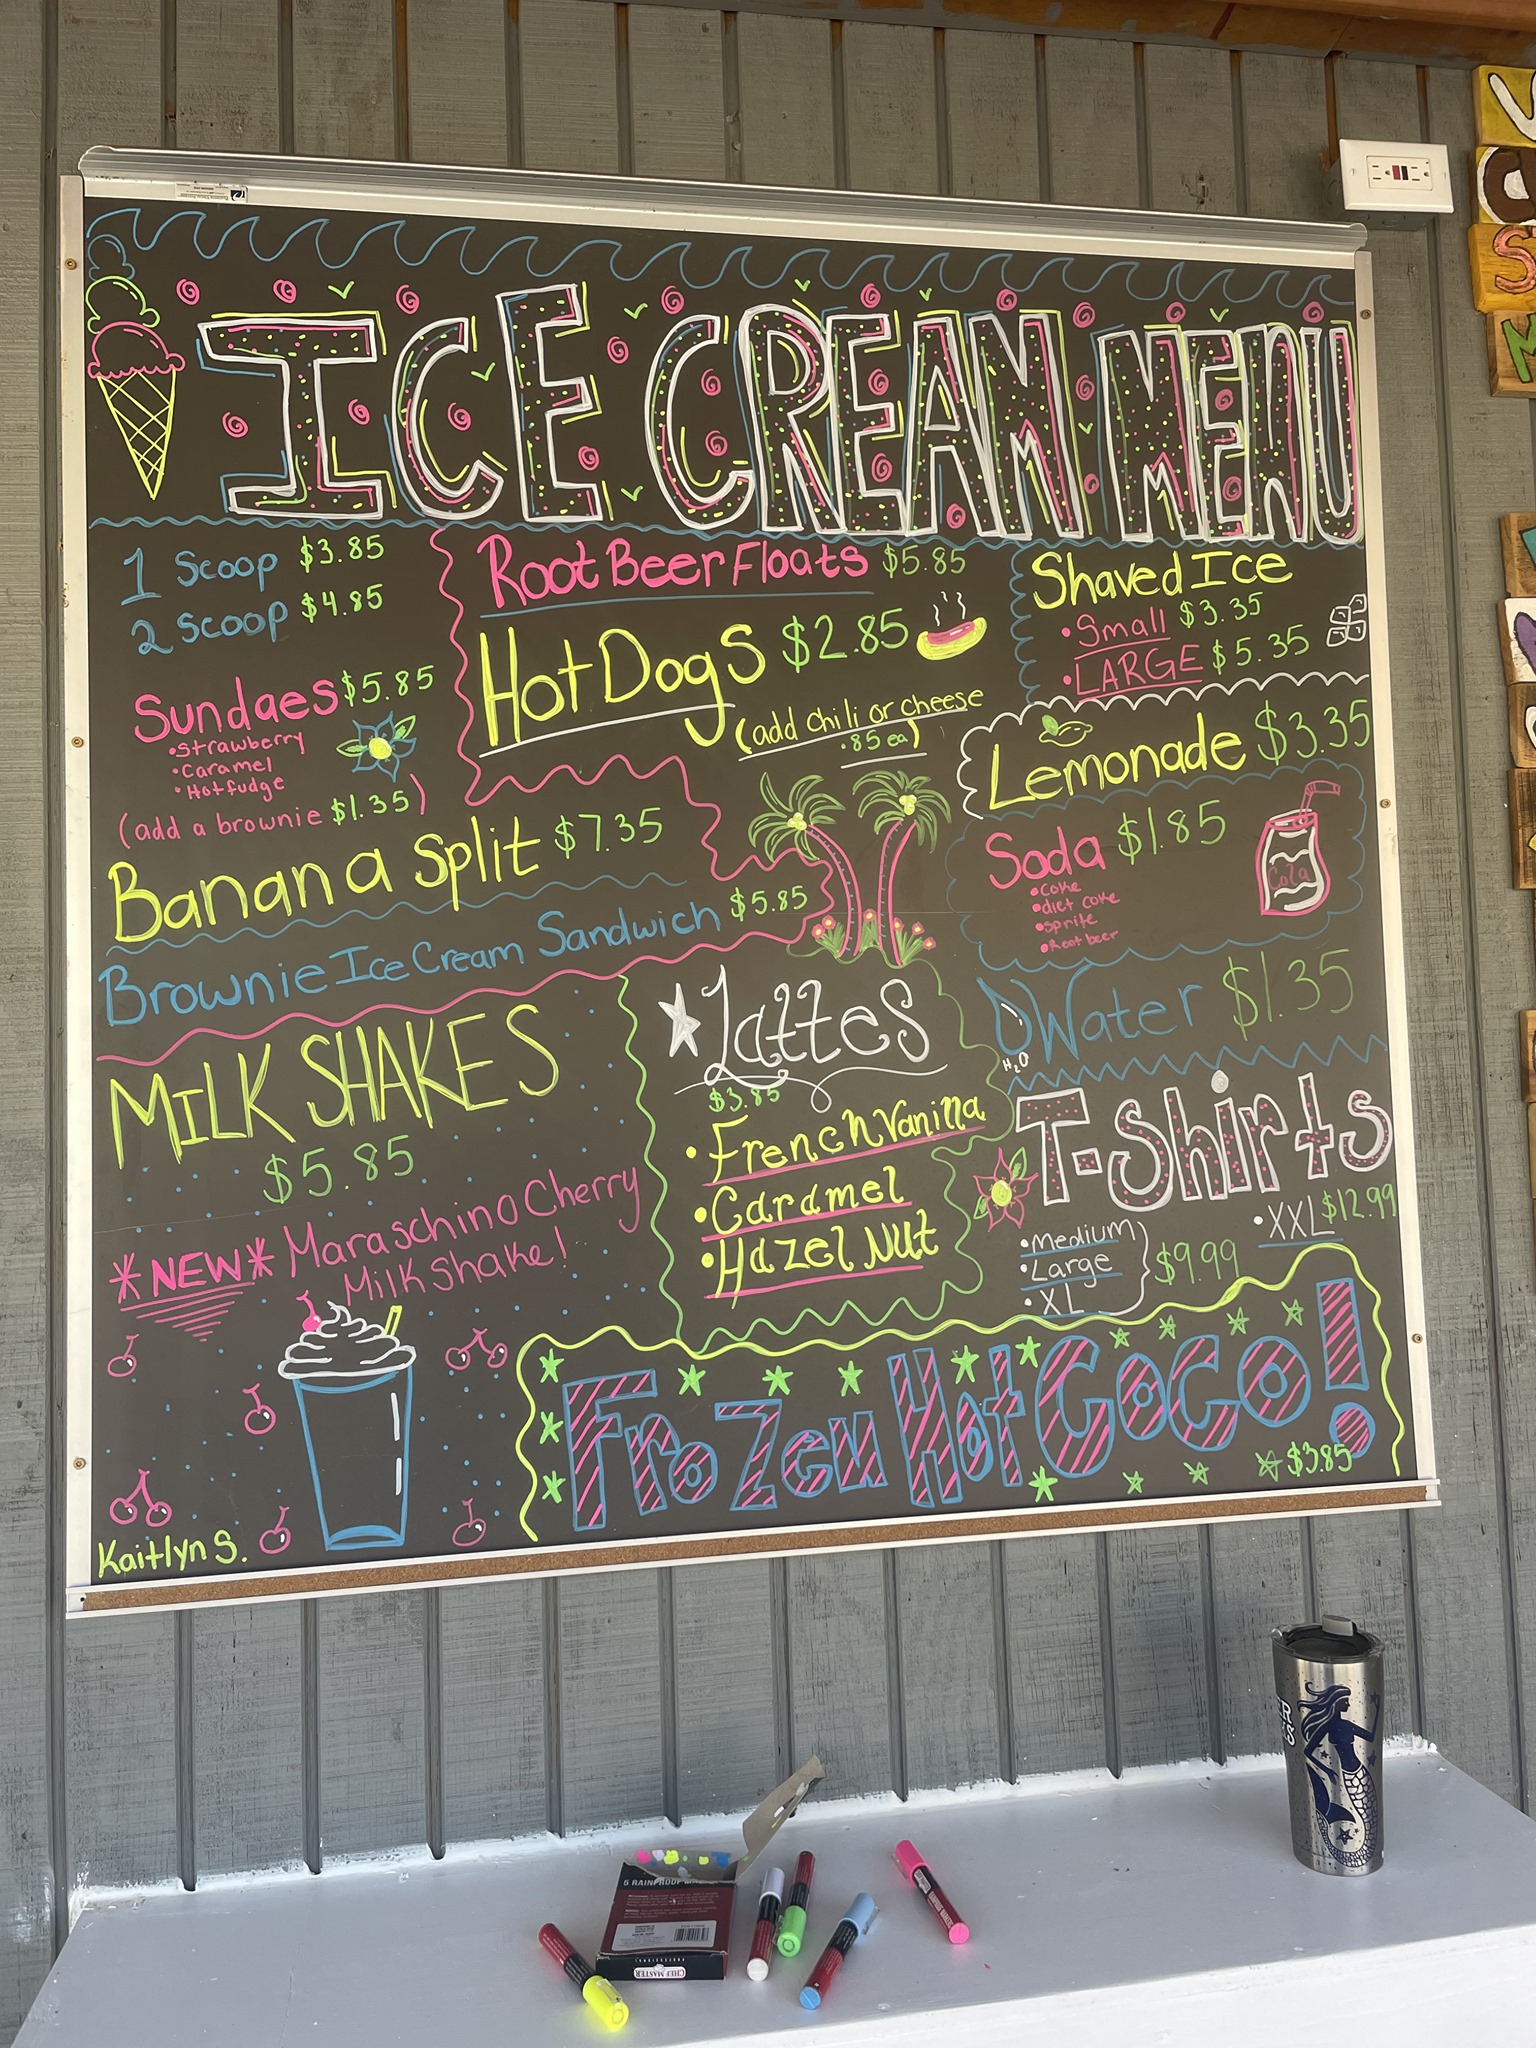 ICE CREAM MENU
1 Scoop $3.85
2 Scoop $4.85
Sundaes $5.85
•Strawberry
•Caramel
•Hotfudge
(add a brownie $1.35)
Banana Split $7.35
Brownie Ice Cream Sandwich $5.85
Root Beer Floats $5.85
Hot Dogs $2.85
(add chili or cheese
.85 ea)
Shaved Ice
•Small $3.35
•LARGE $5.35
Lemonade $3.35
Soda $1.85
•coke
•diet coke
•sprite
•Root beer
Cola
Water $1.35
H2O
MILK SHAKES
$5.85
*NEW* Maraschino Cherry
Milkshake!
Lattes
$3.85
•French Vanilla
•Caramel
•Hazel Nut
T-Shirts
•XXL $12.99
•Medium
•Large
•XL
$9.99
Frozen Hot Coco!
$3.85
Kaitlyn S.
5 RAINPROOF
CHEF MASTER